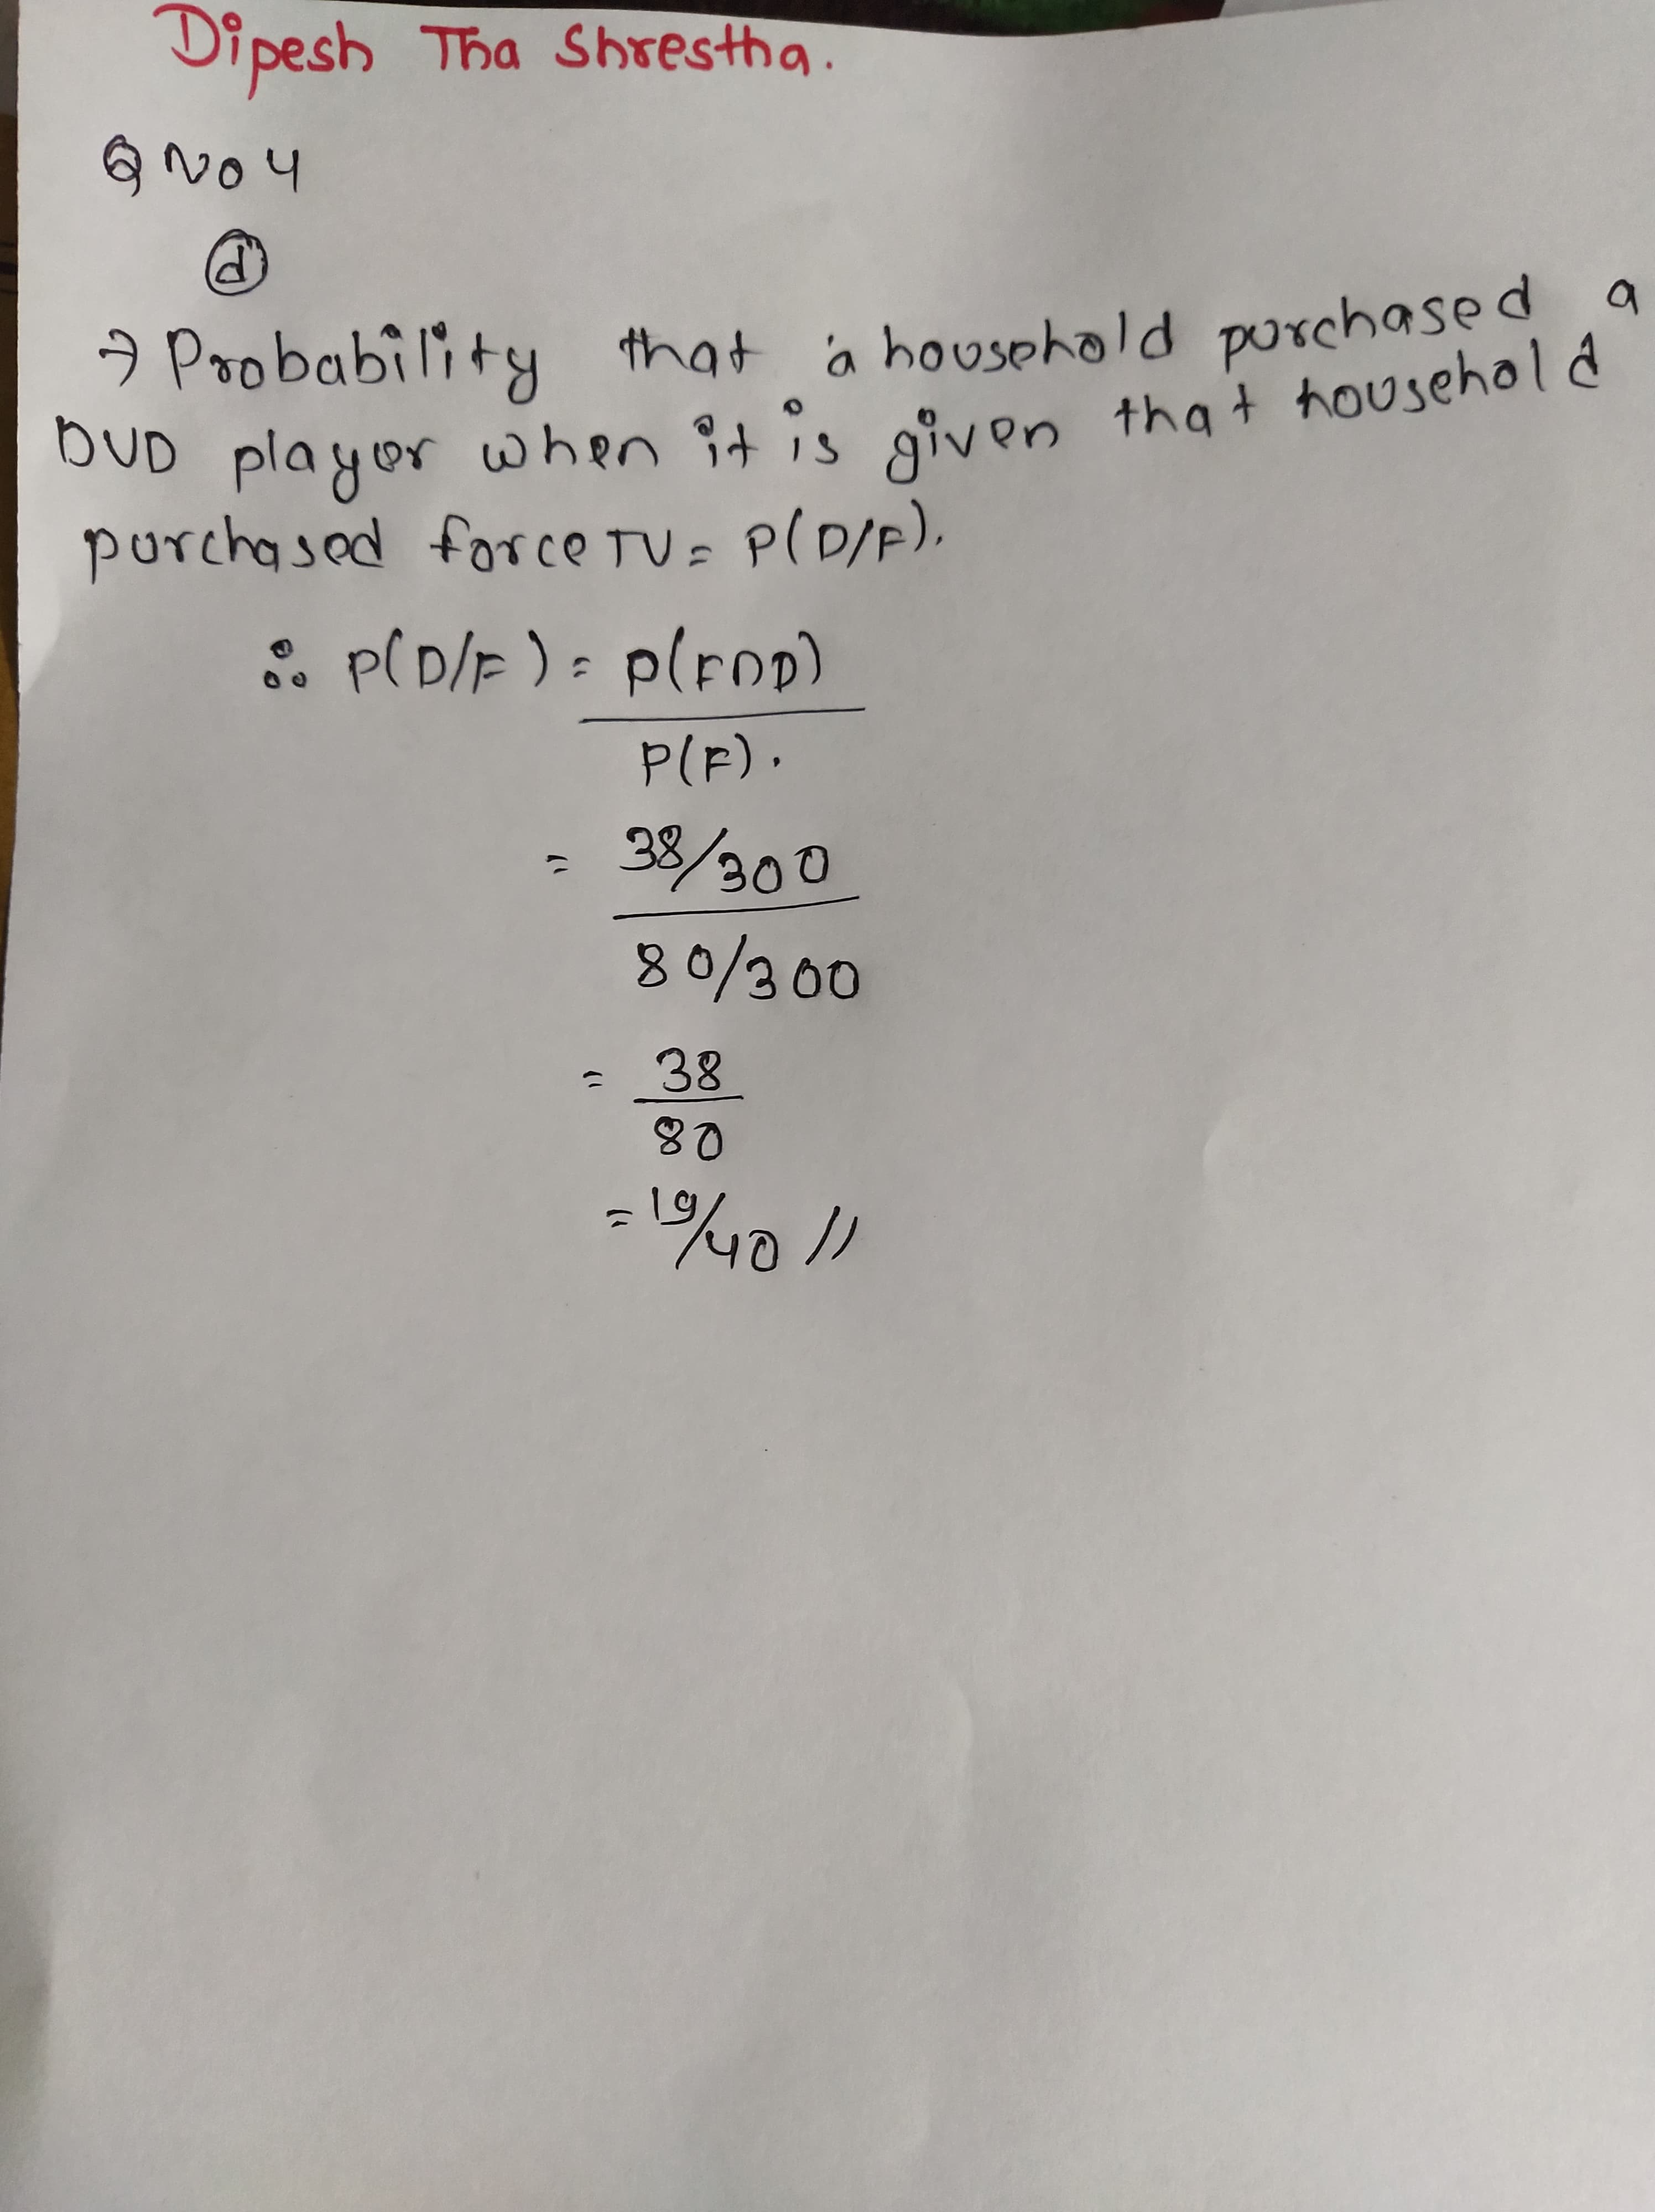 Dipesh Tha Shrestha.
Q NO 4
d
→ Probability that a household purchased a
DVD player when it is given that household
purchased force TV = P(D/F).
∴ P(D/F) = P(F∩D)
P(F).
= 38/300
80/300
= 38
80
= 19/40 //